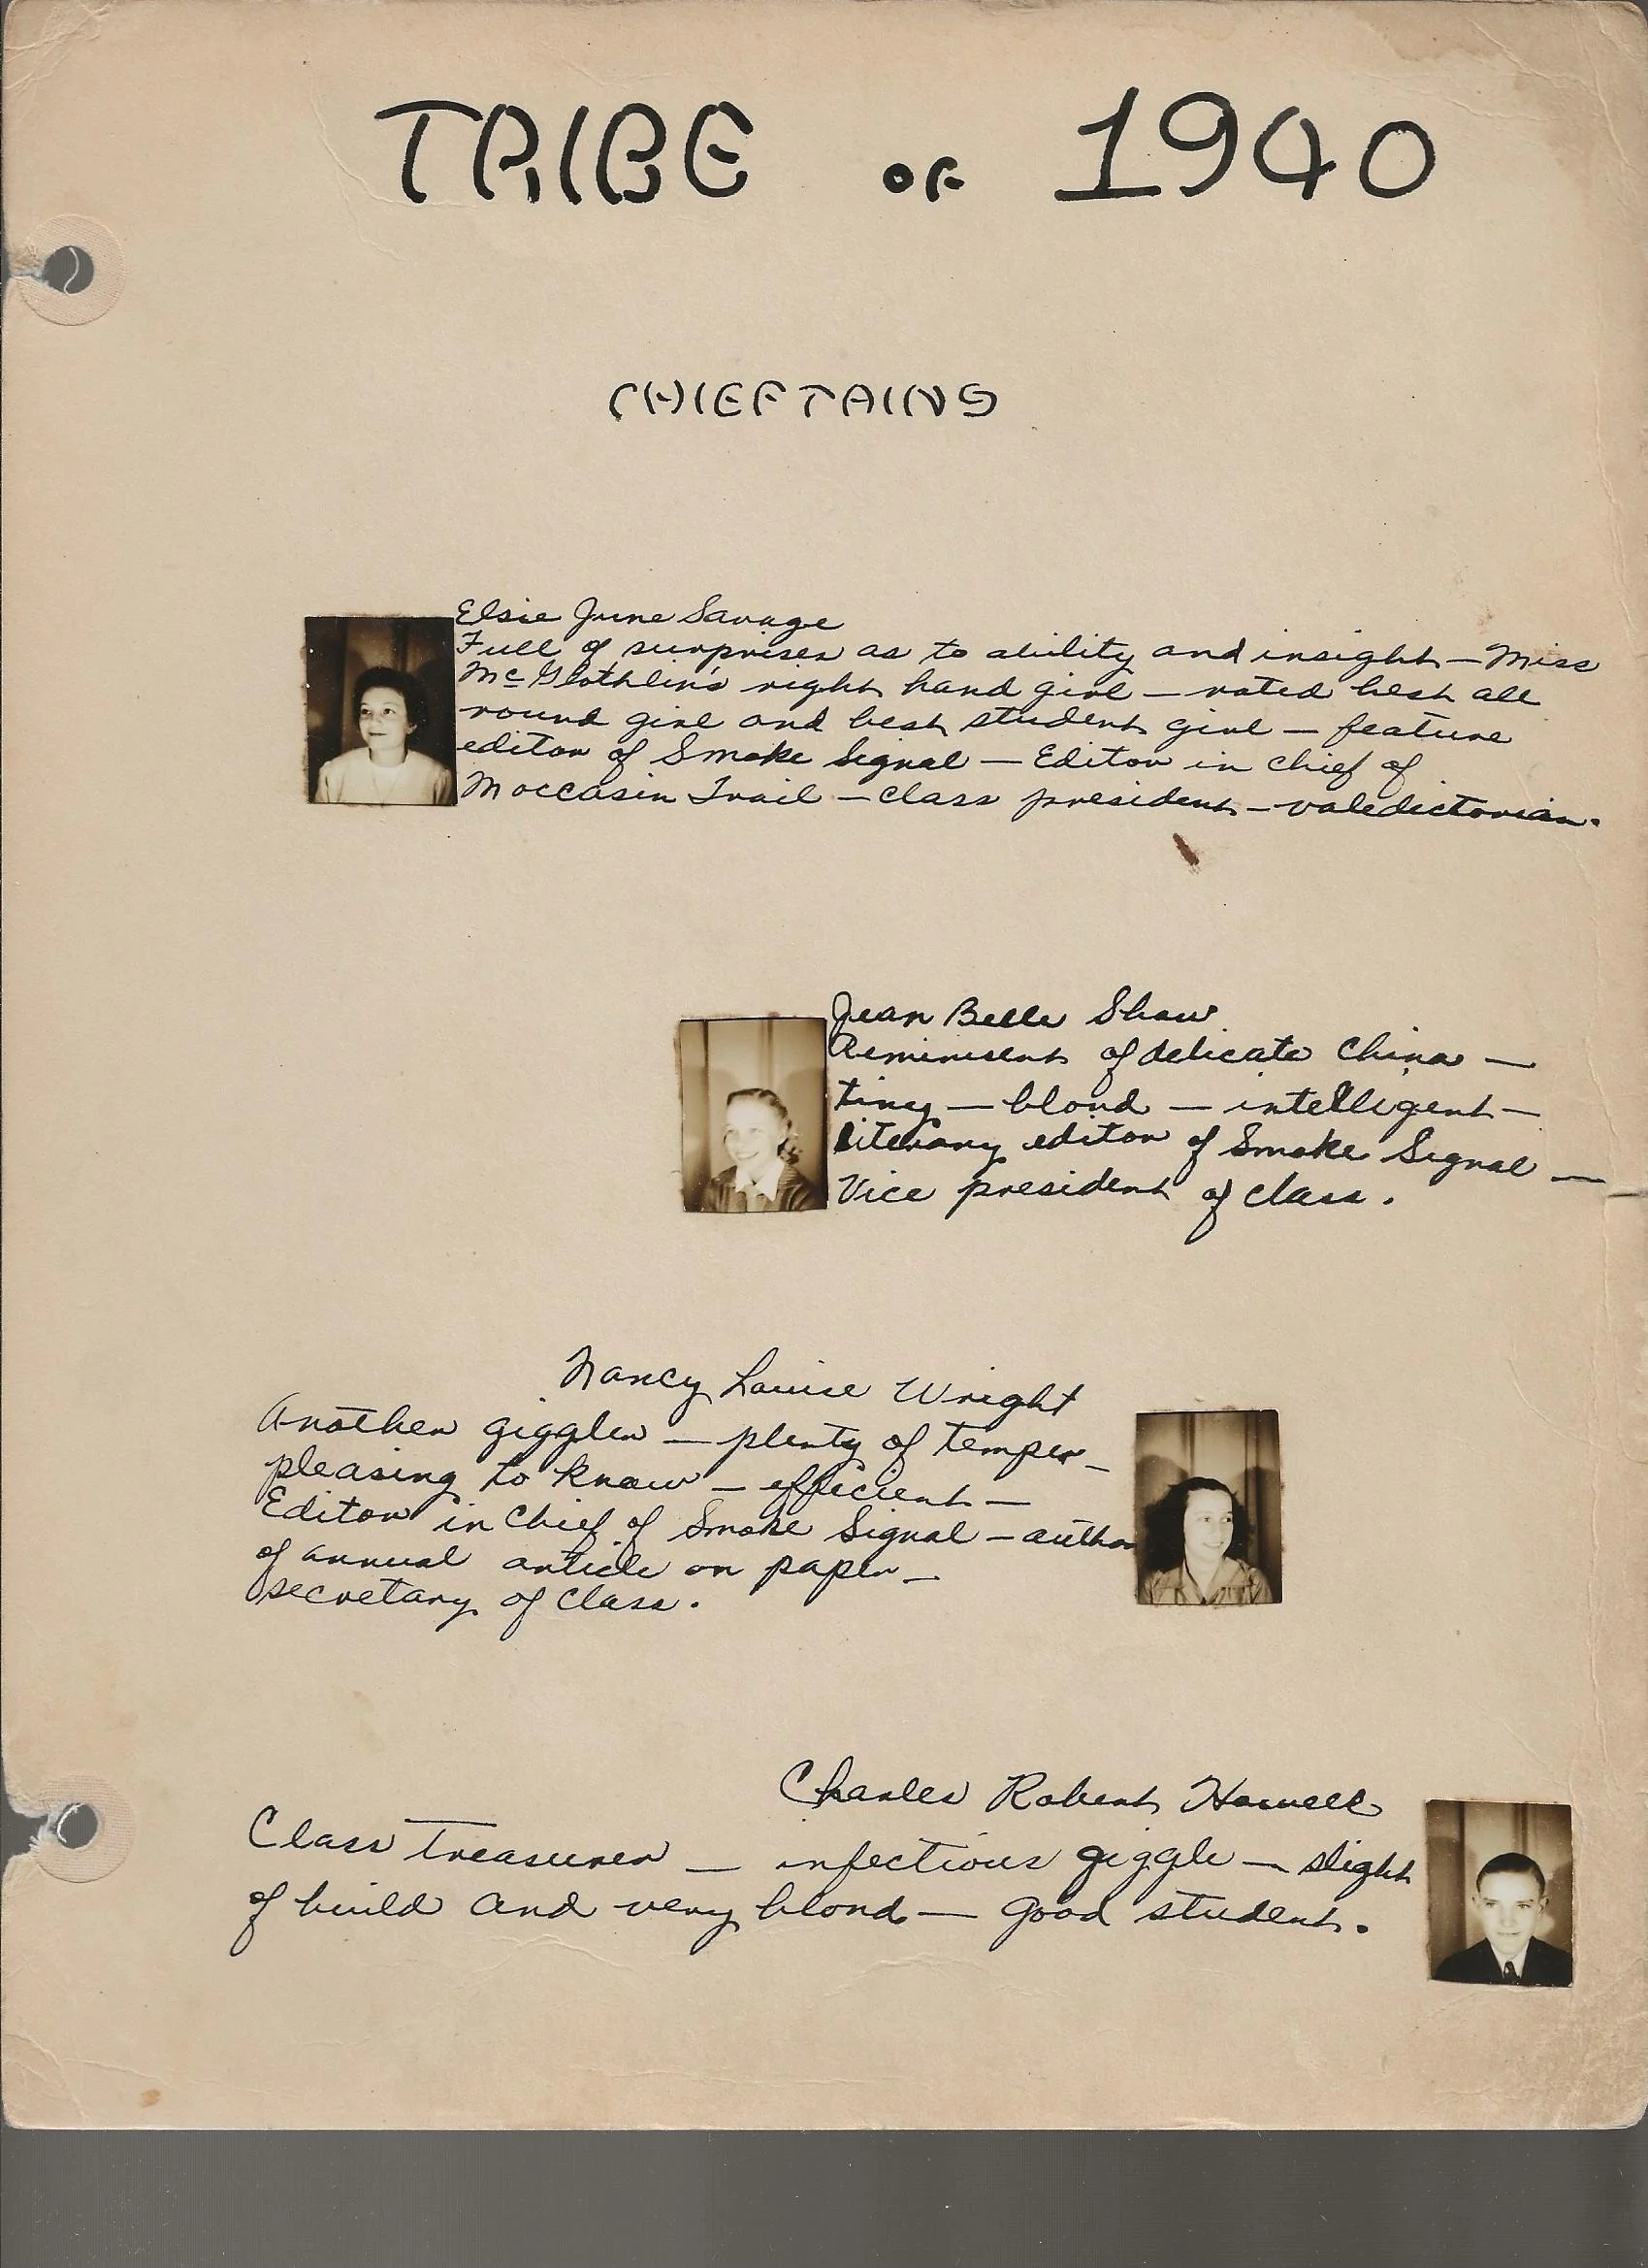 TRIBE OF 1940
CHIEFTAINS
Elsie June Savage
Full of surprises as to ability and insight — Miss
McGlothlin's right hand girl — voted best all
round girl and best student girl — feature
editor of Smoke Signal — Editor in chief of
Moccasin Trail — class president — valedictorian.
Jean Belle Shaw
Reminisent of delicate china —
tiny — blond — intelligent —
literary editor of Smoke Signal —
Vice president of class.
Nancy Louise Wright
Another giggler — plenty of temper —
pleasing to know — efficient —
Editor in chief of Smoke Signal — author
of annual article on paper —
secretary of class.
Charles Robert Howell
Class treasurer — infectious giggle — slight
of build and very blond — good student.